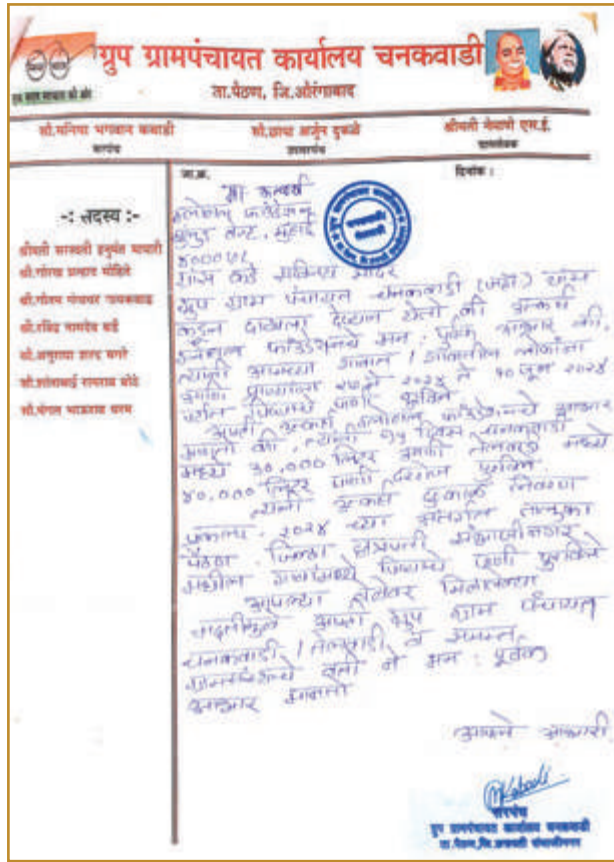 ग्रुप ग्रामपंचायत कार्यालय चनकवाडी
ता.पैठण, जि.औरंगाबाद
सौ.मनिषा भगवान कबाडी
सरपंच
सौ.छाया अर्जुन दुकळे
उपसरपंच
श्रीमती एस.ई.
ग्रामसेवक
जा.क्र.
दिनांक :
-: सदस्य :-
श्रीमती सरस्वती हनुमंत
श्री.गोरख प्रल्हाद मोहिते
श्री.गौतम गायकवाड
श्री.रविंद्र नामदेव
सौ.अनुराधा शरद
सौ.शांताबाई रामराव
सौ.मंगल भाऊराव
मा. उत्कर्ष
ग्लोबल फाउंडेशन
मुलुंड वेस्ट, मुंबई
ग्रुप ग्राम पंचायत चनकवाडी
कडून दाखला देण्यात येतो की उत्कर्ष
फाउंडेशनचे मन : पूर्वक आभार की
त्यांनी आमच्या गावात / गावातील लोकांना
२०२४ ते १० जून २०२४
पिण्याचे पाणी पुरविले
आम्ही उत्कर्ष ग्लोबल फाउंडेशनचे आभार
मानतो की, त्यांनी दिवस चनकवाडी
मध्ये ३०,००० लिटर तेलवाडी मध्ये
४०,००० लिटर पाणी दररोज
त्यांनी उत्कर्ष दुष्काळ निवारण
प्रकल्प २०२४ च्या अंतर्गत तालुका
पैठण जिल्हा छत्रपती संभाजीनगर
मधील गावांमध्ये पिण्याचे पाणी पुरविले
आपल्या वेळेवर मिळालेल्या
मदतीमुळे आम्ही ग्रुप ग्राम पंचायत
चनकवाडी / तेलवाडी व समस्त
ग्रामस्थांच्या वतीने मन : पूर्वक
आभार मानतो
आपले आभारी
सरपंच
ग्रुप ग्रामपंचायत कार्यालय चनकवाडी
ता.पैठण,जि.छत्रपती संभाजीनगर